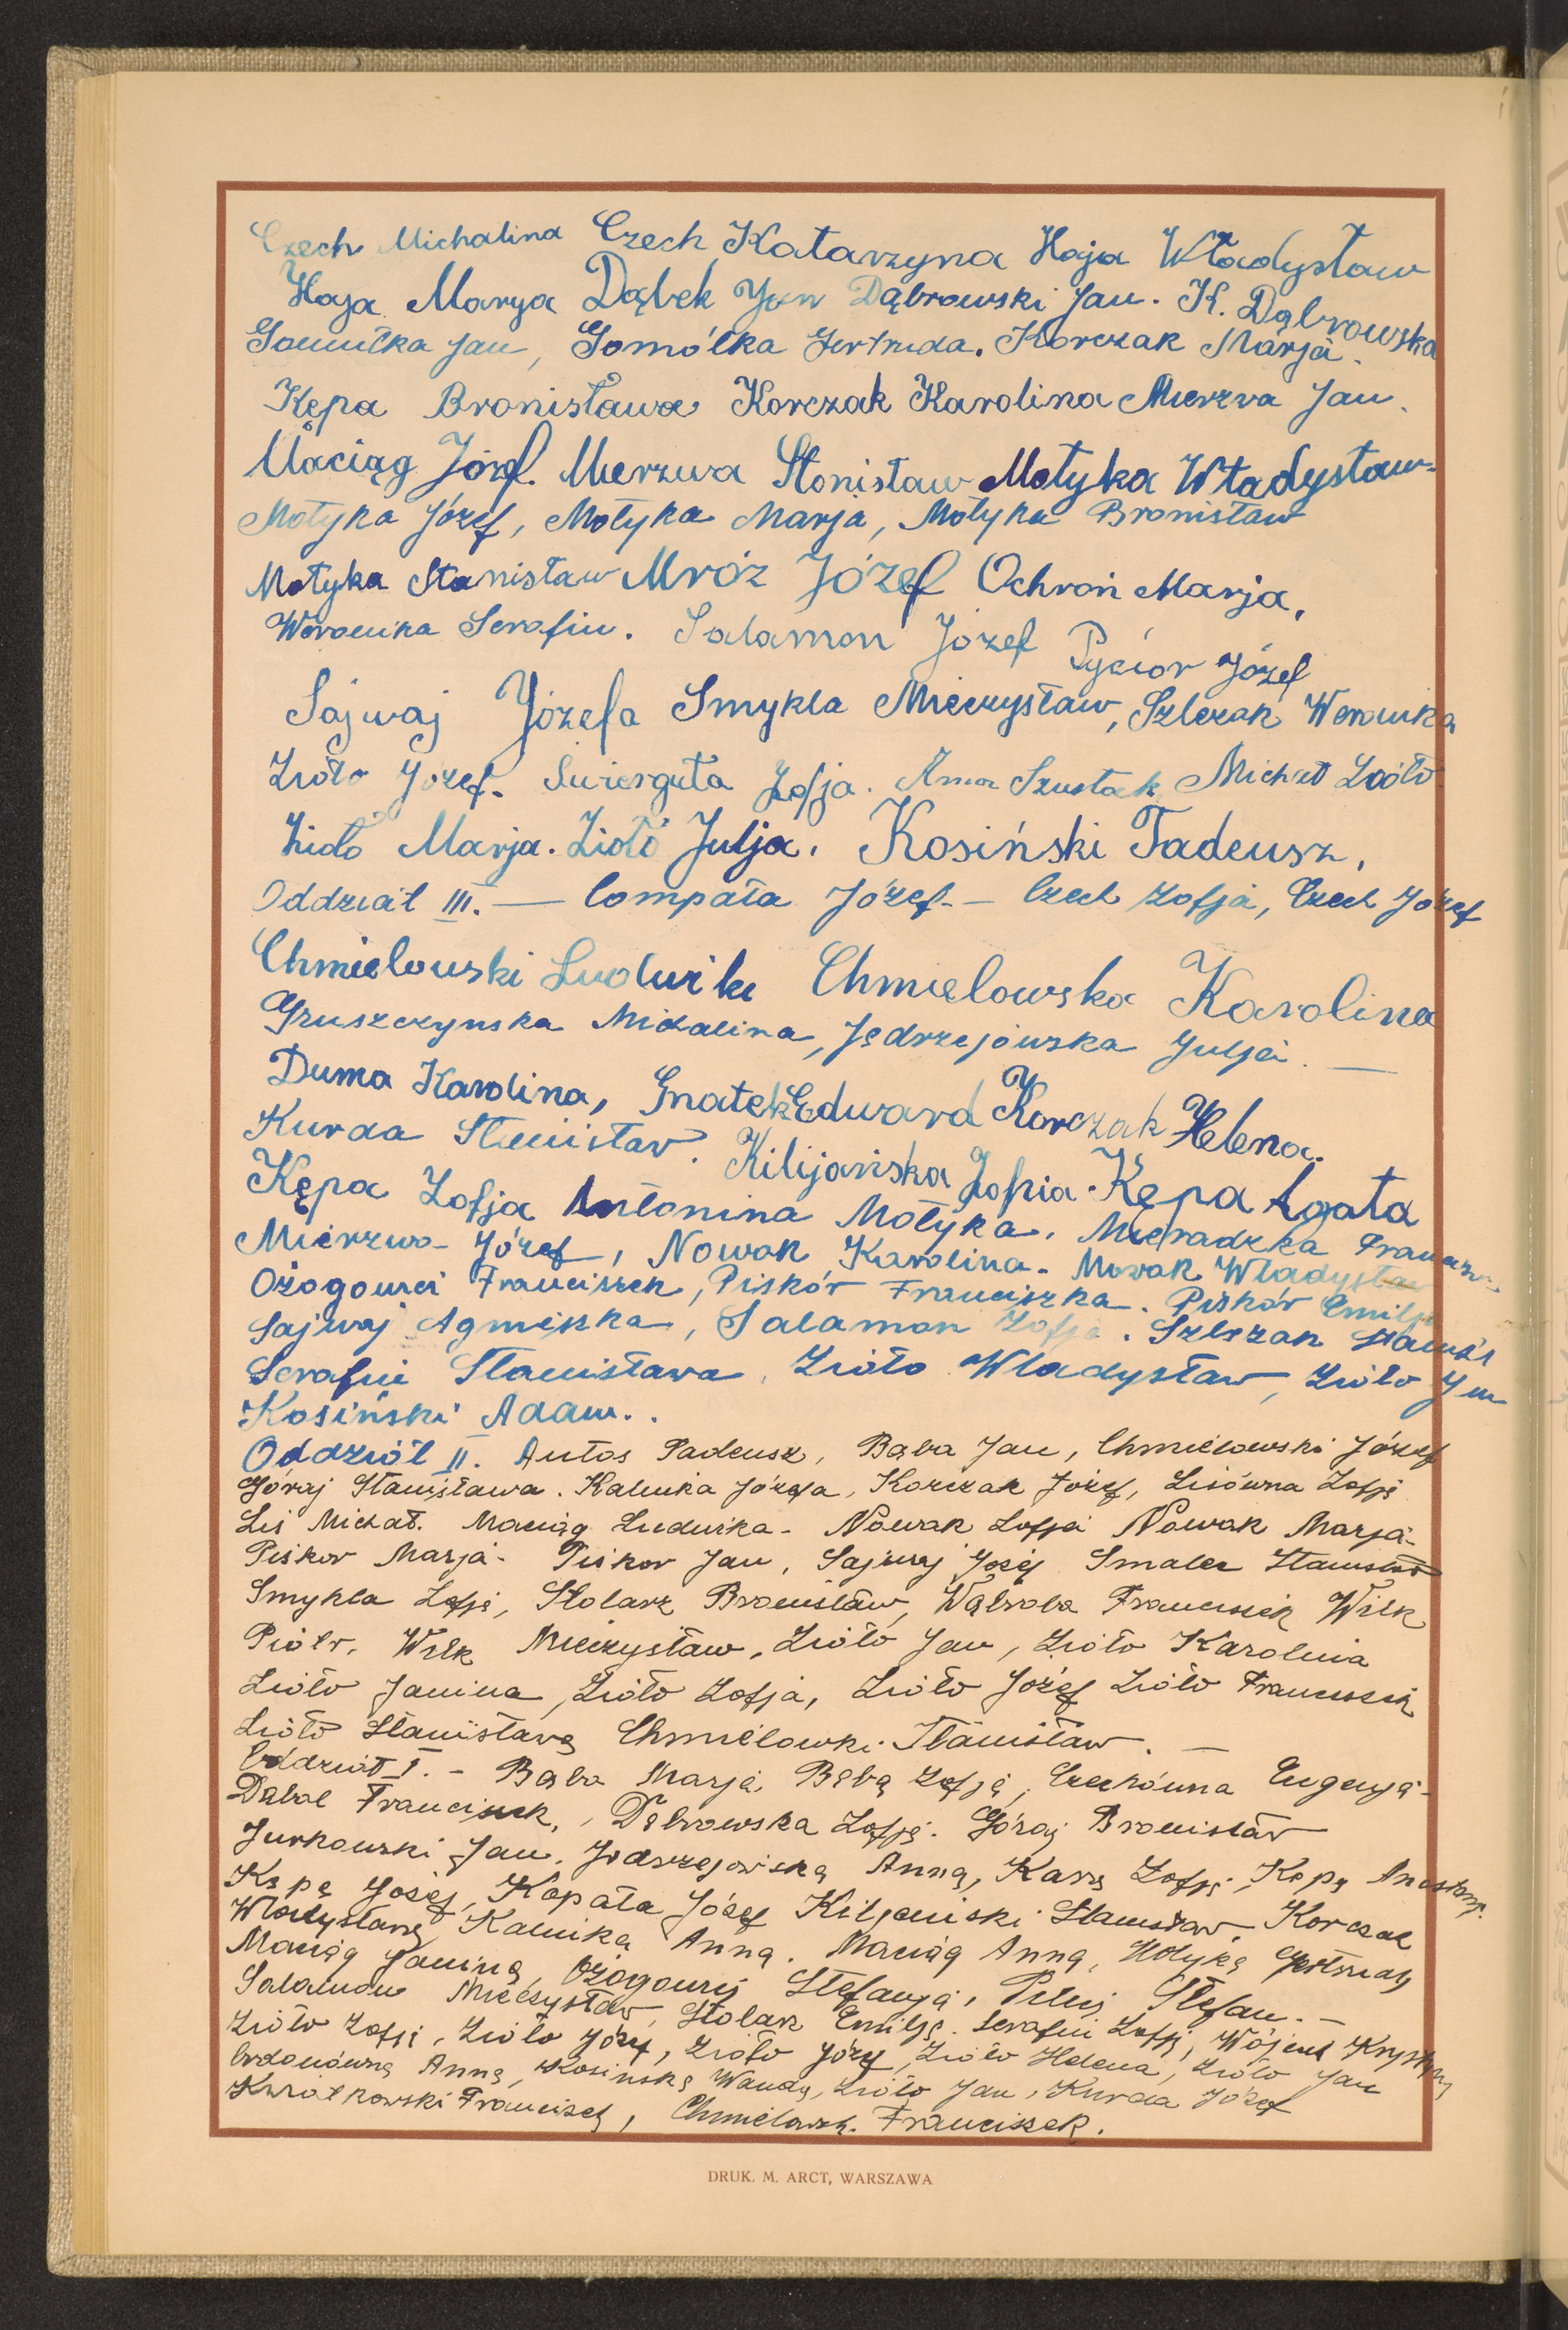 Czech Michalina Czech Katarzyna Haja Władysław
Haja Marya Dąbek Jan Dąbrowski Jan. K. Dąbrowska
Gomułka Jan, Gomółka Gertruda. Korczak Marja.
Kępa Bronisława Korczak Karolina Mierzva Jan.
Maciąg Józef. Mierzwa Stonisław Motyka Władysław
Motyka Józef, Motyka Marja, Motyka Bronisław
Motyka Stanisław Mróz Józef Ochroń Marja,
Weronika Serafin. Salamon Józef Pycior Józef
Sajwaj Józefa Smykla Mieczysław, Szlezak Weronika
Zioło Józef. Świerguła Zofja. Anna Szustak Michał Zioło
Zioło Marja. Zioło Julja. Kosiński Tadeusz,
Oddział III. — Compała Józef. — Czech Zofja, Czech Józef
Chmielowski Ludwik Chmielowska Karolina
Gruszczynska Michalina, Jędrzejowska Julja. —
Duma Karolina, Gnatek Edward Korczak Helena.
Kurda Stanisław. Kilijańska Zofia. Kępa Agata
Kępa Zofja Antonina Motyka. Mieradzka
Mierzwa Józef, Nowak Karolina. Nowak Władysław
Franciszek, Piskór Franciszka. Piskór Emilja
Sajwaj Agnieszka, Salamon Zofja. Szlezak
Serafin Stanisława, Zioło Władysław, Zioło Jan
Kosiński Adam..
Oddział II. Antos Tadeusz, Bąba Jan, Chmielowski Józef
Góraj Stanisława. Kalinka Józefa, Korczak Józef, Lisówna Zofja
Liś Michał. Maciąg Ludwika. Nowak Zofja Nowak Marja.
Piskor Marja. Piskor Jan, Sajwaj Józef Smalec Stanisław
Smykla Zofja, Stolarz Bronisław, Wątroba Franciszek Wilk
Piotr. Wilk Mieczysław, Zioło Jan, Zioło Karolina
Zioło Janina, Zioło Zofja, Zioło Józef Zioło Franciszek
Zioło Stanisława Chmielowki Stanisław. —
Oddział I. - Bąba Marja Bąba Zofja, Czechówna Eugenja.
Dąbal Franciszek, Dąbrowska Zofja. Góraj Bronisław
Jurkowski Jan, Anna, Zofja, Kępa
Kępa Józef, Kopała Józef Kiljański Stanisław. Korczak
Władysława Kalinka Anna. Maciąg Anna, Motyka Gertruda
Maciąg Janina, Stefanja, Stefan. -
Salamon Mieczysław, Stolarz Emilja. Serafin Zofja, Wójcik Krystyna
Zioło Zofja, Zioło Józef, Zioło Józef, Zioło Helena, Zioło Jan
Anna, Kosińska Wanda, Zioło Jan, Kurda Józef
Kwiatkowski Franciszek, Franciszek.
DRUK. M. ARCT, WARSZAWA